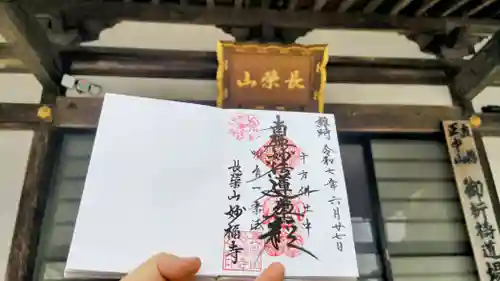 長榮山
維時 令和七年六月廿七日
十方佛土中
南無妙法蓮華経
唯有一乗法
長榮山 妙福寺
正中山 御祈祷道場